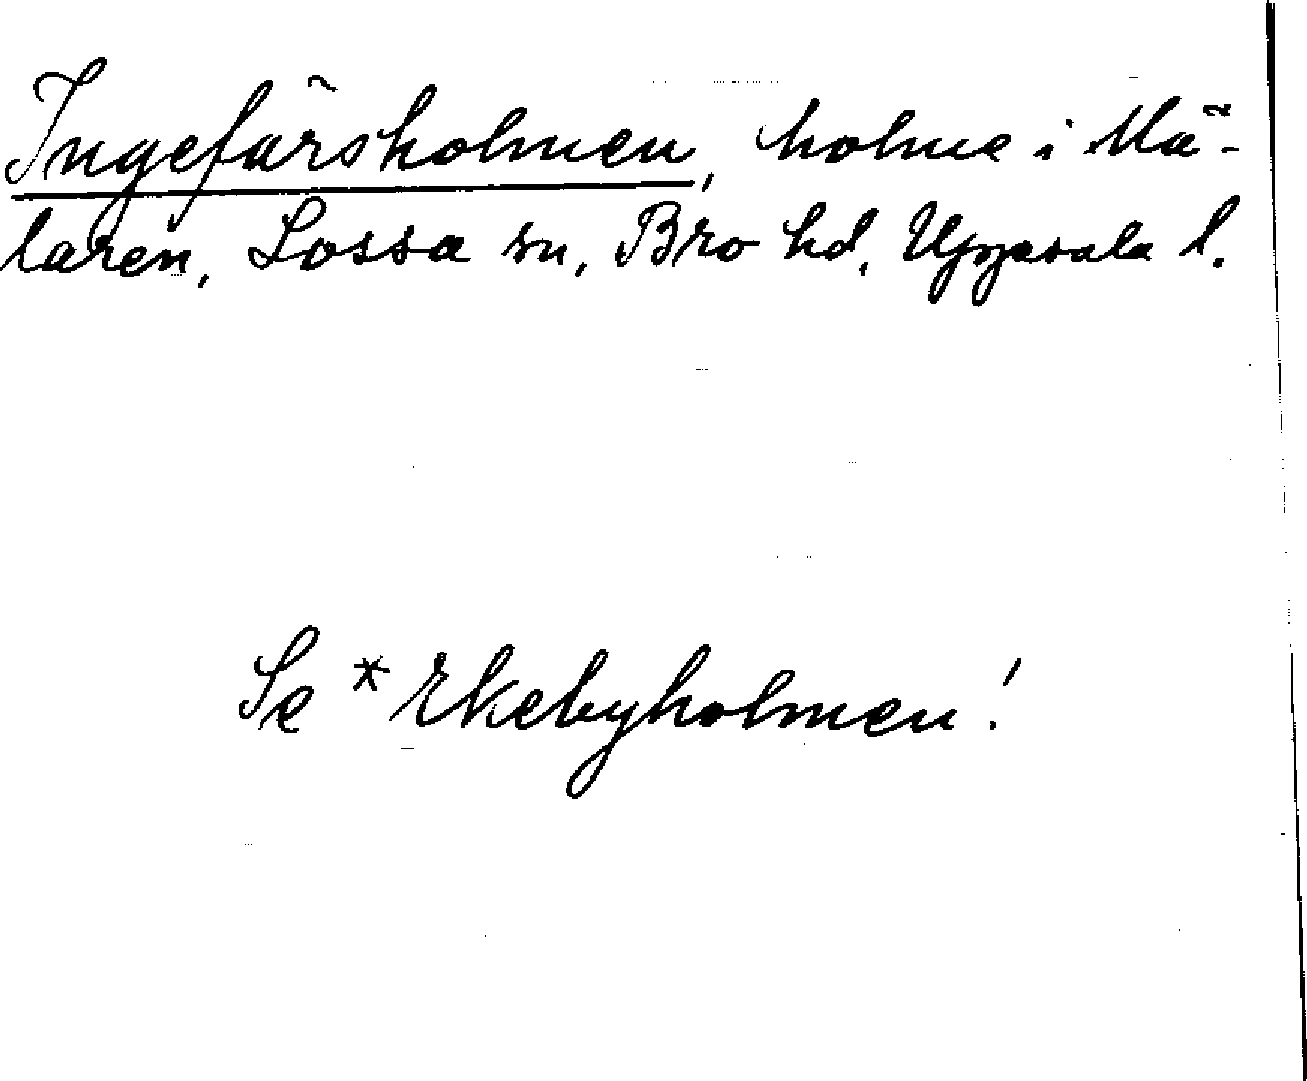 Ingefärsholmen, holme i Mä-
laren, Lossa sn, Bro hd, Uppsala l.
Se *Ekebyholmen!